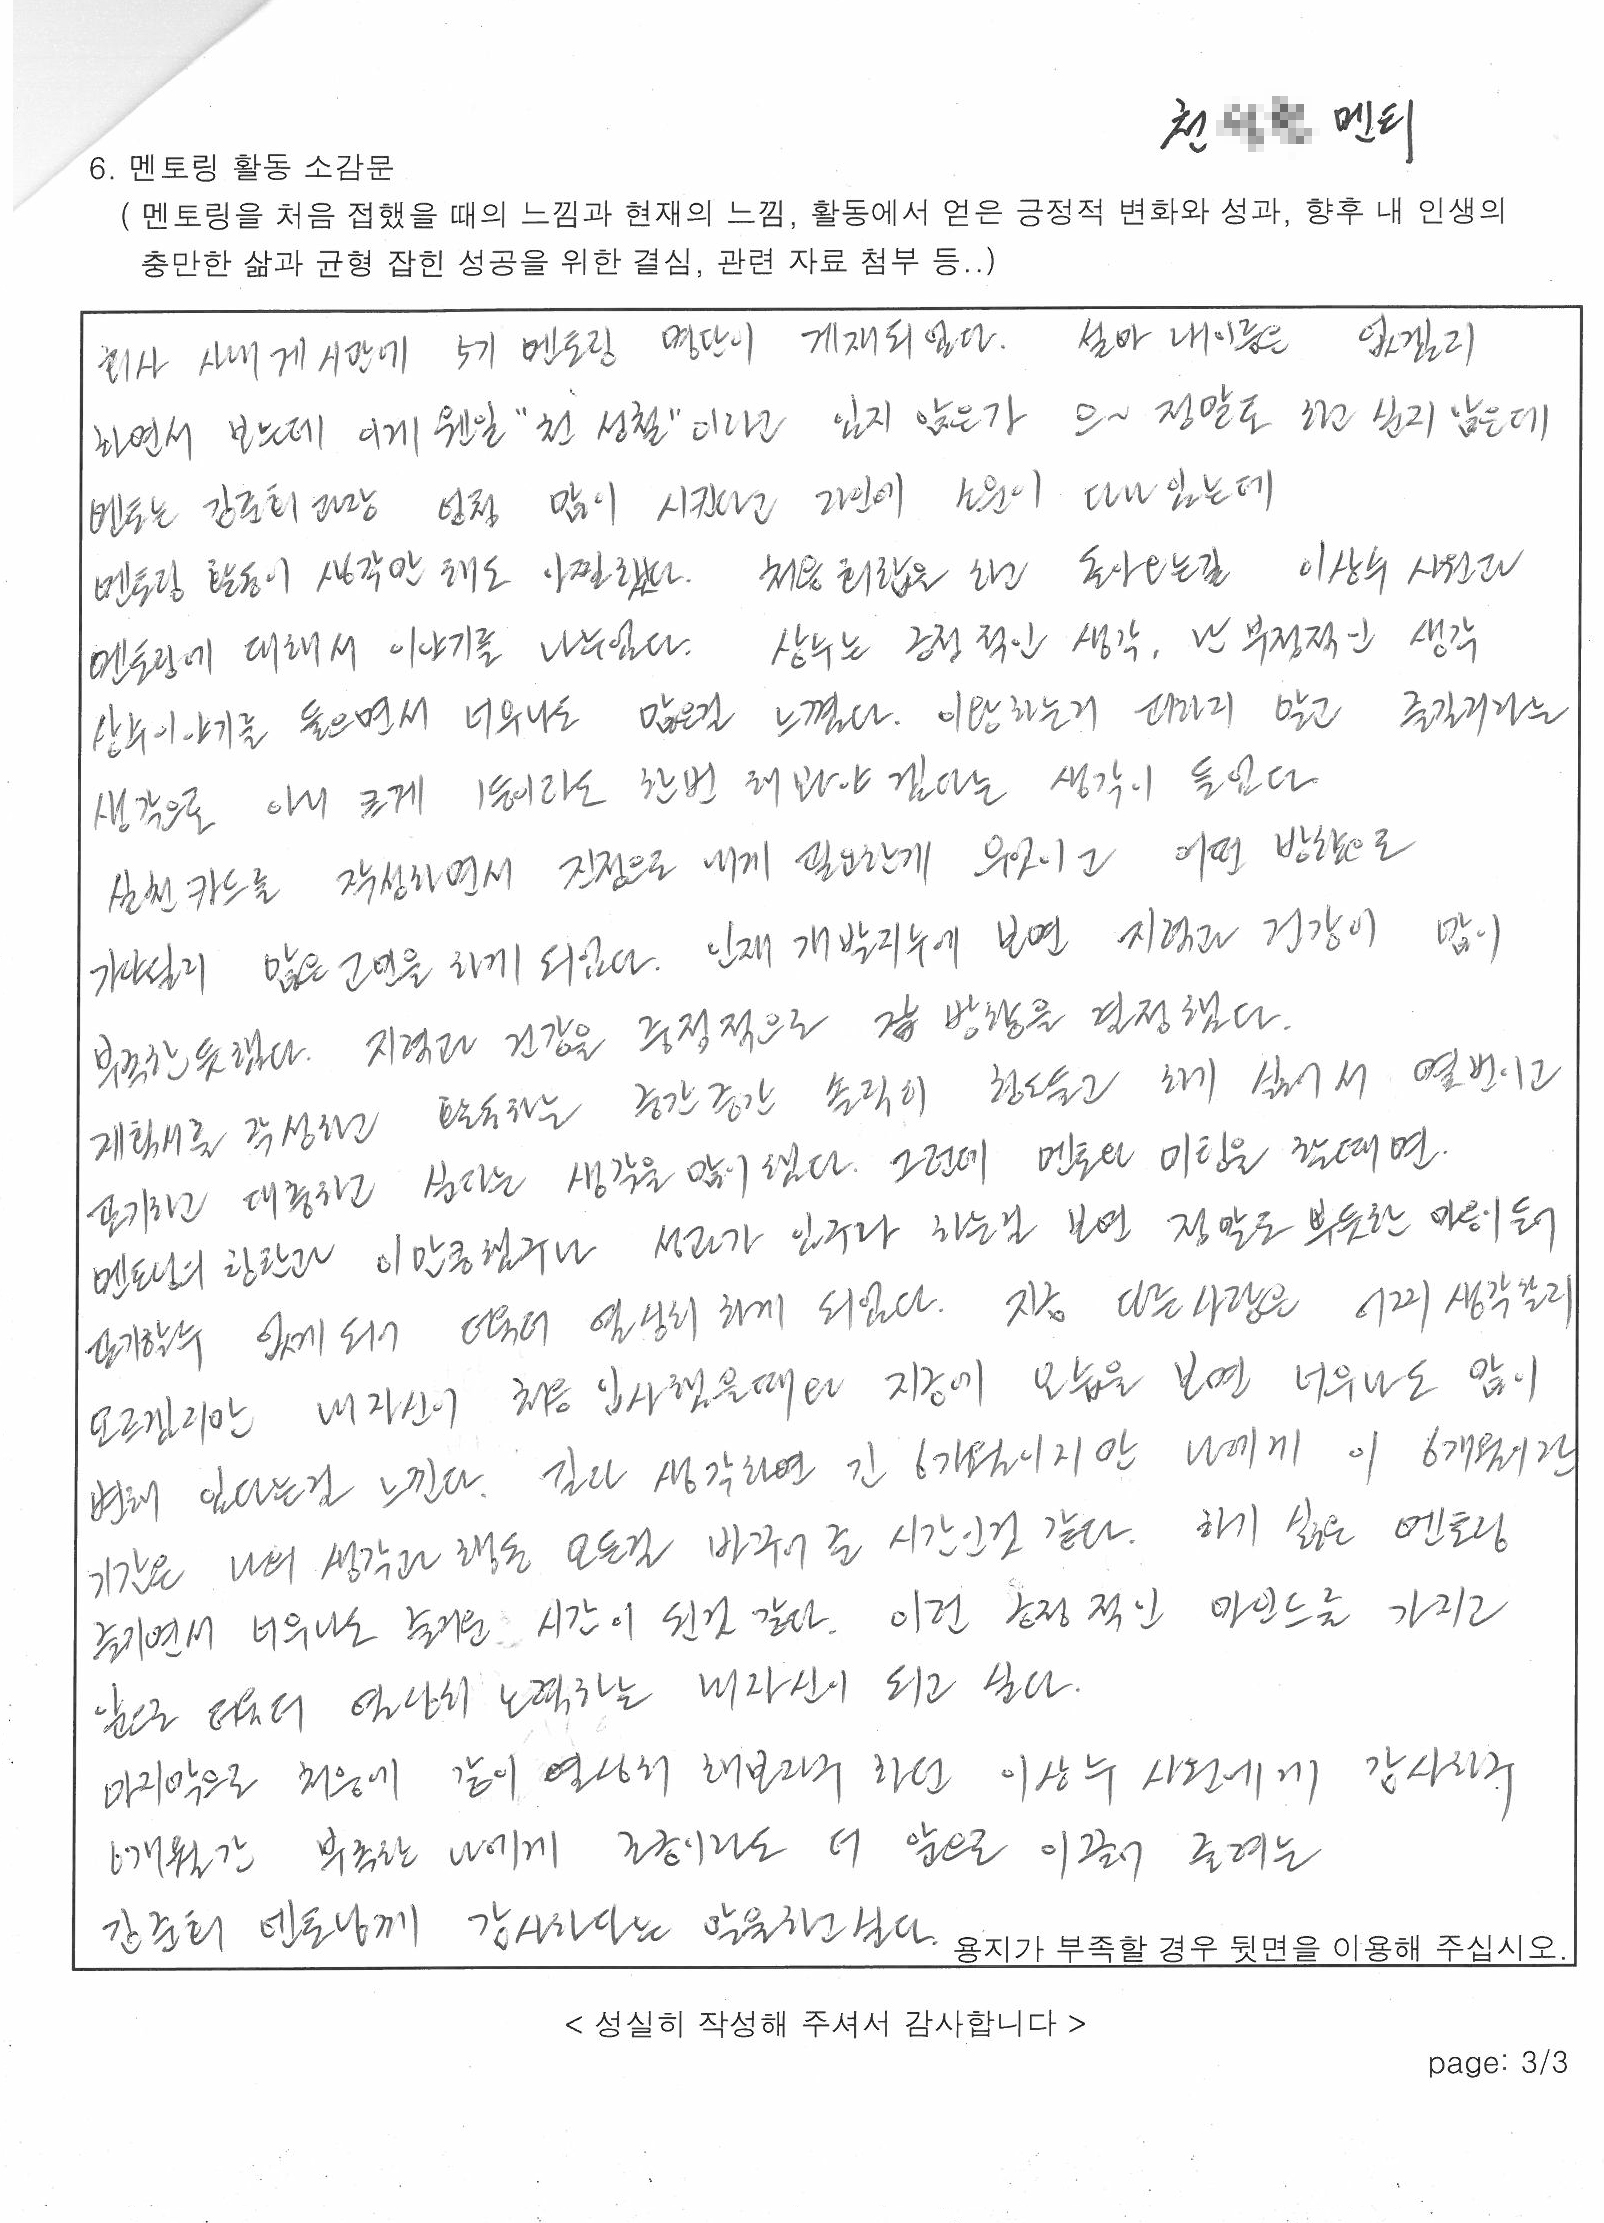 천 멘티
6. 멘토링 활동 소감문
( 멘토링을 처음 접했을 때의 느낌과 현재의 느낌, 활동에서 얻은 긍정적 변화와 성과, 향후 내 인생의
충만한 삶과 균형 잡힌 성공을 위한 결심, 관련 자료 첨부 등..)
회사 사내 게시판에 5기 멘토링 명단이 게재되었다. 설마 내이름은 없겠지
하면서 보는데 이게 웬일 "천 성철"이라고 있지 않은가 으~ 정말로 하고 싶지 않은데
멘토는 김준희 과장 엄청 많이 시킨다고 라인에 소문이 다나 있는데
멘토링 활동이 생각만 해도 아찔했다. 처음 회합을 하고 돌아오는길 이상수 사원과
멘토링에 대해서 이야기를 나누었다. 상수는 긍정적인 생각, 난 부정적인 생각
상수이야기를 들으면서 너무나도 많은걸 느꼈다. 이왕하는거 피하지 말고 즐기자라는
생각으로 아니 크게 1등이라도 한번 해봐야 겠다는 생각이 들었다
실천카드를 작성하면서 진정으로 내게 필요한게 무엇이고 어떤 방향으로
가야할지 많은 고민을 하게 되었다. 인재 개발지수에 보면 지력과 건강이 많이
부족한 듯했다. 지력과 건강을 중점적으로 방향을 결정했다.
계획서를 작성하고 활동하는 중간중간 솔직히 힘도들고 하기 싫어서 열번이고
포기하고 대충하고 싶다는 생각을 많이 했다. 그런데 멘토와 미팅을 할때면.
멘토님의 칭찬과 이만큼했구나 성과가 있구나 하는걸 보면 정말로 뿌듯한 마음이 들어
포기할수 없게 되어 더욱더 열심히 하게 되었다. 지금 다른사람은 어찌 생각할지
모르겠지만 내 자신이 처음 입사했을때와 지금에 모습을 보면 너무나도 많이
변해 있다는걸 느낀다. 길다 생각하면 긴 6개월이지만 나에게 이 6개월이란
기간은 나의 생각과 행동 모든걸 바꾸어 준 시간인것 같다. 하기 싫은 멘토링
즐기면서 너무나도 즐거운 시간이 된것 같다. 이런 긍정적인 마인드를 가지고
앞으로 더욱더 열심히 노력하는 내자신이 되고 싶다.
마지막으로 처음에 같이 열심히 해보자구 하던 이상수 사원에게 감사하구
6개월간 부족한 나에게 조금이라도 더 앞으로 이끌어 줄려는
김준희 멘토님께 감사하다는 말을하고싶다.
용지가 부족할 경우 뒷면을 이용해 주십시오.
< 성실히 작성해 주셔서 감사합니다 >
page: 3/3